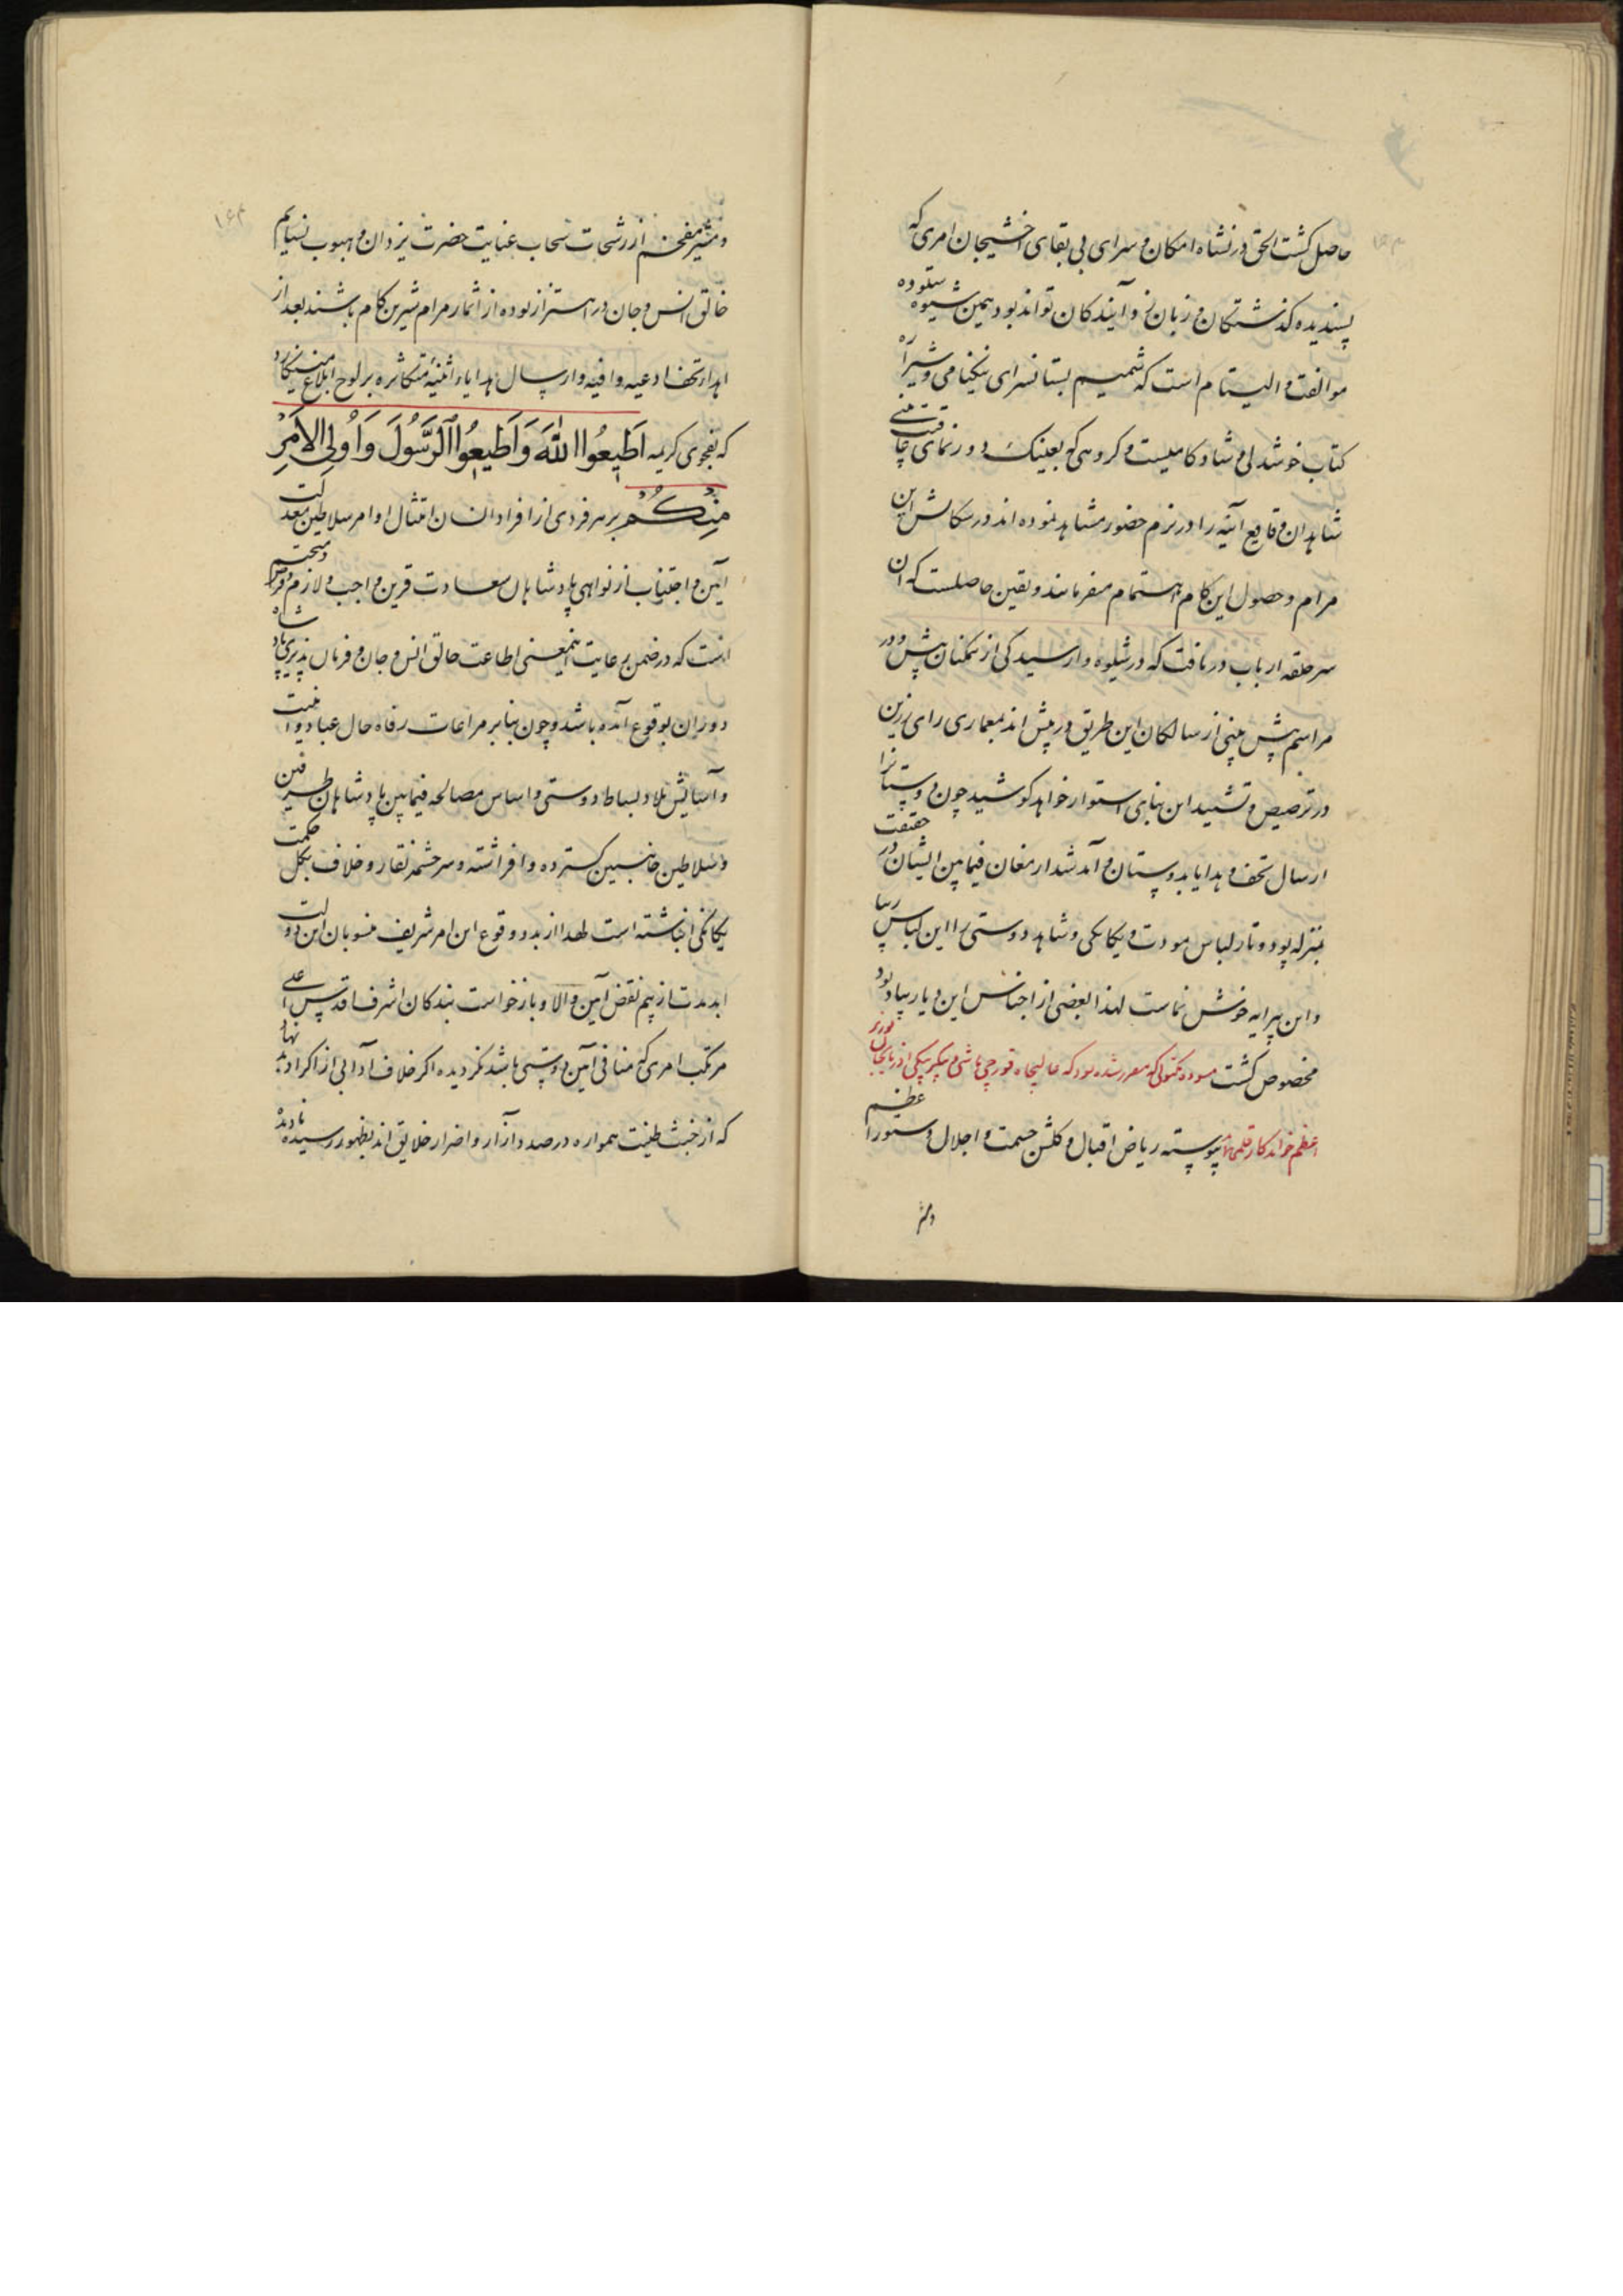 حاصل کشت الحق در نشاه امکان و سرای بی بقای اخشیجان امری که
پسندیده کذشتکان و زبان زد آیندکان تواند بود همین شیوه ستوده
موالفت و الیتام است که شمیم بستانسرای نیکنامی و شیرازه
کتاب خوشدلی و شادکامیست و کروهی که بعینک دور نمای عاقبت بینی
شاهدان وقایع آتیه را در بزم حضور مشاهد نموده اند در سکالش این
مرام و حصول این کام اهتمام میفرمایند و یقین حاصلست که ان
سر حلقه ارباب دریافت که در شیوه وارسیدکی از همکنان پیش و در
مراسم پیش بینی از سالکان این طریق در پیش اند بمعماری رای رزین
در ترصیص و تشیید این بنای استوار خواهد کوشید چون دوستانرا
ارسال تحف و هدایا بدوستان و آمد شد ارمغان فیمابین ایشان در حقیقت
بمنزله پود و تار لباس مودت و یکانکی و شاهد دوستی را این لباس زیبا
و این پیرایه خوش نماست لهذا بعضی از اجناس این دیار بیاد بود
مخصوص کشت مسوده مکتوبی که مقرر شده بود که عالیجاه قورچی باشی و بیکلربیکی اذربایجان بوزیر
اعظم خواندکار قلمی نماید پیوسته ریاض اقبال و کلشن حشمت و اجلال دستور اعظم
و مشیر
۱۶۴
و مشیر مفخم از رشحات سحاب عنایت حضرت یزدان و هبوب نسایم
خالق انس و جان در اهتزاز بوده از اثمار مرام شیرین کام باشند بعد از
اهدار تحف ادعیه وافیه و ارسال هدایاء اثنیه متکاثره بر لوح ابلاغ مینکارد
که بفحوی کریمه اَطیعُوا اللهَ وَاَطیعُوا الرَّسُولَ وَاُولِی الاَمرِ
مِنکُم بر هر فردی از افراد انسان امتثال اوامر سلاطین معدلت
آیین و اجتناب از نواهی پادشاهان سعادت قرین واجب و لازم و فرض و متحتم
است که در ضمن رعایت اینمعنی اطاعت خالق انس و جان و فرمان پذیری پادشاه
دوران بوقوع آمده باشد و چون بنابر مراعات رفاه حال عباد و امنیت
و آسایش بلاد بساط دوستی و اساس مصالحه فیمابین پادشاهان طرفین
و سلاطین جانبین کسترده و افراشته و سر چشمه نقار و خلاف بکل حکمت
یکانکی انباشته است لهذا از بدو وقوع این امر شریف منسوبان این دولت
ابدمدت از بیم نقض آیین والا و بازخواست بندکان اشرف اقدس اعلی
مرتکب امری که منافی آیین دوستی باشد نکردیده اکر خلاف آدابی از اکراد بد نهاد
که از خبث طینت همواره در صدد آزار و اضرار خلایق اند بظهور رسیده